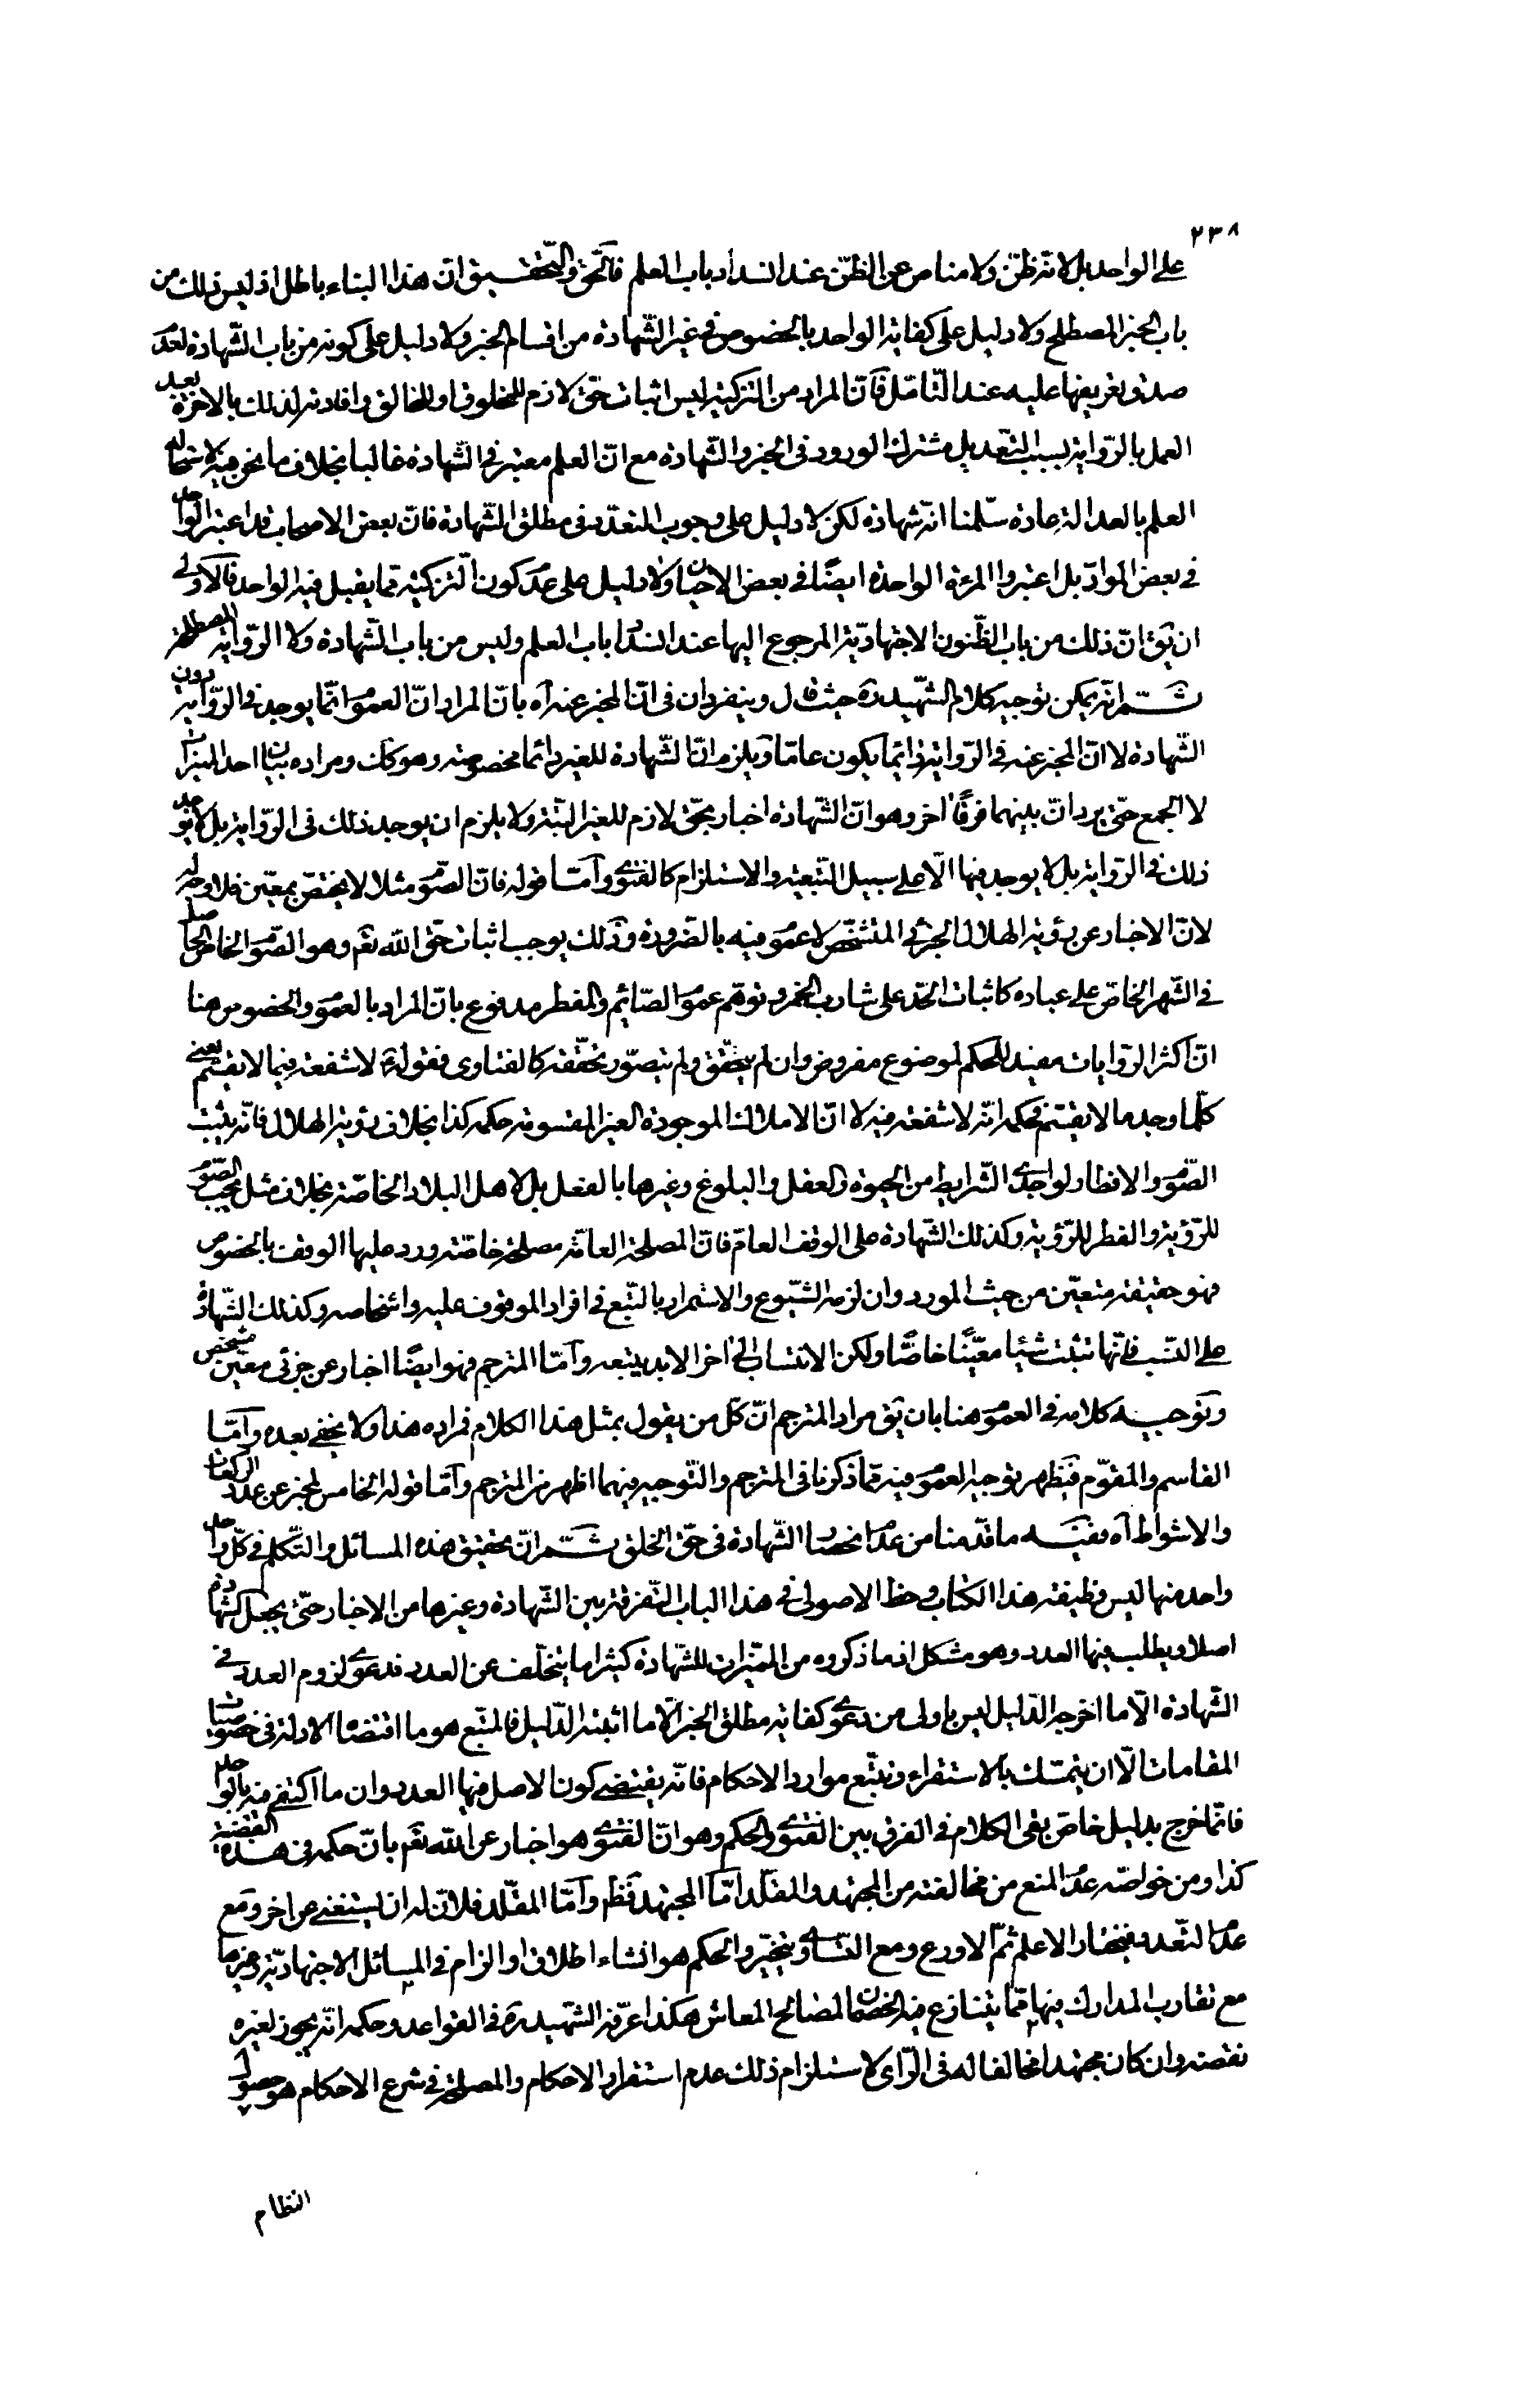 ٢٣٨
على الواحد بل لانه ظنّ ولا مناص عن الظنّ عند انسداد باب العلم فالحقّ والتّحقيق انّ هذا البناء باطل اذ ليس ذلك من
باب الخبر المصطلح ولا دليل على كفاية الواحد بالخصوص فى غير الشّهادة من اقسام الخبر ولا دليل على كونه من باب الشّهادة لعدم
صدق تعريفها عليه عند التّامّل فانّ المراد من التزكية ليس اثبات حقّ لازم للمخلوق او للخالق وافادته لذلك بالاخرة بعد
العمل بالرّواية بسبب التّعديل مشترك الورود فى الخبر والشّهادة مع انّ العلم معتبر فى الشّهادة غالبا بخلاف ما نحن فيه لاستحالة
العلم بالعدالة عادة سلّمنا انّه شهادة لكن لا دليل على وجوب التعدّد فى مطلق الشّهادة فانّ بعض الاصحاب قد اعتبر الواحد
فى بعض الموادّ بل اعتبروا المرءة الواحدة ايضًا فى بعض الاحيان ولا دليل على عدم كون التزكية ممّا يقبل فيه الواحد فالاولى
ان يق انّ ذلك من باب الظّنون الاجتهاديّة المرجوع اليها عند انسداد باب العلم وليس من باب الشّهادة ولا الرّواية المصطلحة
ثمّ انّه يمكن توجيه كلام الشّهيد ره حيث قال وينفردان فى انّ المخبر عنه آه بانّ المراد انّ العموم انّما يوجد فى الرّواية دون
الشّهادة لا انّ المخبر عنه فى الرّواية دائما يكون عامّا ويلزم انّ الشّهادة للغير دائما مخصوصة وهو كك ومراده بيان احد الميزات
لا الجمع حتّى يرد انّ بينهما فرقًا آخر وهو انّ الشّهادة اخبار بحقّ لازم للغير البتّة ولا يلزم ان يوجد ذلك فى الرّواية بل لا يوجد
ذلك فى الرّواية بل لا يوجد فيها الّا على سبيل التّبعيّة والاستلزام كالفتوى وامّا قوله فانّ الصّوم مثلا لا يختصّ بمعيّن فلا وجه له
لانّ الاخبار عن رؤية الهلال الجزئى المتشخّص لا عموم فيه بالضّرورة وذلك يوجب اثبات حقّ اللّه تعم وهو الصّوم الخاصّ الحاصل
فى الشّهر الخاصّ على عباده كاثبات الحدّ على شارب الخمر وتوهّم عموم الصّائم والمفطر مدفوع بانّ المراد بالعموم والخصوص هنا
انّ اكثر الرّوايات مفيد للحكم لموضوع مفروض وان لم يتحقّق ولم يتصوّر تحقّقه كالفتاوى فقوله ع لا شفعة فيما لا يقسم يعنى
كلّما وجد ما لا يقسم فحكمه انّه لا شفعة فيه لا انّ الاملاك الموجودة الغير المقسومة حكمه كذا بخلاف رؤية الهلال فانّه يثبت
الصّوم والافطار لواجدى الشّرايط من الحيوة والعقل والبلوغ وغيرها بالفعل بل لاهل البلاد الخاصّة بخلاف مثل يجب الصّوم
للرّؤية والفطر للرّؤية وكذلك الشّهادة على الوقف العامّ فانّ المصلحة العامّة مصلحة خاصّة ورد عليها الوقف بالخصوص
فهو حقيقة متعيّن من حيث المورد وان لزمه الشّيوع والاستمرار بالتّبع فى افراد الموقوف عليه واشخاصه وكذلك الشّهادة
على النّسب فانّها تثبت شيئا معيّنًا خاصًّا ولكن الانتساب الى آخر الابد يتبعه وامّا المترجم فهو ايضًا اخبار عن جزئى معيّن مشخّص
وتوجيه كلامه فى العموم هنا بان يق مراد المترجم انّ كلّ من يقول بمثل هذا الكلام فمراده هذا ولا يخفى بعده وامّا
القاسم والمقوّم فيظهر توجيه العموم فيه ممّا ذكرنا فى المترجم والتّوجيه فيهما اظهر من المترجم وامّا قوله الخامس المخبر عن عدد الركعات
والاشواط آه ففيه ما قدّمنا من عدم انحصار الشّهادة فى حقّ الخلق ثمّ انّ تحقيق هذه المسائل والتّكلّم فى كلّ واحد
واحد منها ليس وظيفة هذا الكتاب وحظ الاصولى فى هذا الباب التّفرقة بين الشّهادة وغيرها من الاخبار حتّى يجعل الشّهادة
اصلا ويطلب فيها العدد وهو مشكل اذ ما ذكروه من المميّزات للشّهادة كثيرا ما يتخلّف عن العدد فدعوى لزوم العدد فى
الشّهادة الّا ما اخرجه الدّليل ليس باولى من دعوى كفاية مطلق الخبر الّا ما اثبته الدّليل فالمتّبع هو ما اقتضاه الادلة فى خصوصيات
المقامات الّا ان يتمسّك بالاستقراء وتتبّع موارد الاحكام فانّه يقتضى كون الاصل فيها العدد وان ما اكتفى فيه بالواحد
فانّما خرج بدليل خاصّ بقى الكلام فى الفرق بين الفتوى والحكم وهو انّ الفتوى هو اخبار عن اللّه تعم بانّ حكمه فى هذه القضيّة
كذا ومن خواصّه عدم المنع من مخالفته من المجتهد والمقلّد امّا المجتهد فظ وامّا المقلّد فلانّ له ان يستفتى عن اخر ومع
عدم التعدّد فيختار الاعلم ثمّ الاورع ومع التّساوى يتخيّر والحكم هو انشاء اطلاق او الزام فى المسائل الاجتهاديّة وغيرها
مع تقارب المدارك فيها ممّا يتنازع فيه الخصمان لمصالح المعاش هكذا عرّفه الشّهيد ره فى القواعد وحكمه انّه يجوز لغيره
نقضه وان كان مجتهدا مخالفا له فى الرّاى لاستلزام ذلك عدم استقرار الاحكام والمصلحة فى شرع الاحكام هو حصول
النظام